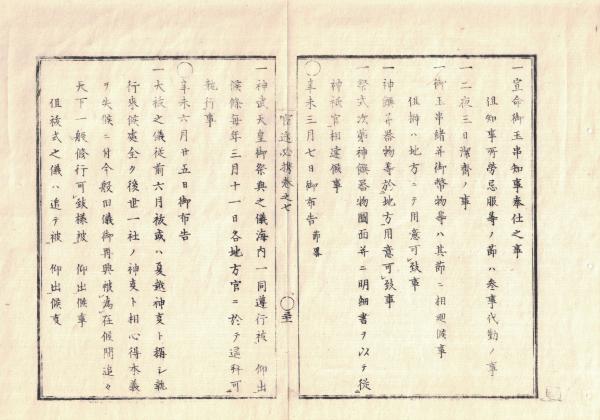 一宣命御玉串知事奉仕之事
但知事所労忌服等ノ節ハ参事代勤ノ事
一一夜三日潔斎ノ事
一御玉串緒并御幣物等ハ其節ニ相廻候事
但榊ハ地方ニテ用意可致事
一神饌并器物等於地方用意可致事
一祭式次第神饌器物図面并ニ明細書ヲ以テ従
神祇官相達候事
〇辛未三月七日御布告 節略
官途必携巻之七
一神武天皇御祭典之儀海内一同遵行被 仰出
候條毎年三月十一日各地方官ニ於テ遥拝可
執行事
〇辛未六月廿五日御布告
一大祓之儀従前六月祓或ハ夏越神事ト称シ執
行来候処全ク後世一社ノ神事ト相心得本義
ヲ失候ニ付今般旧儀御再興被為在候間追々
天下一般修行可致様被 仰出候事
但祓式之儀ハ追テ被 仰出候事